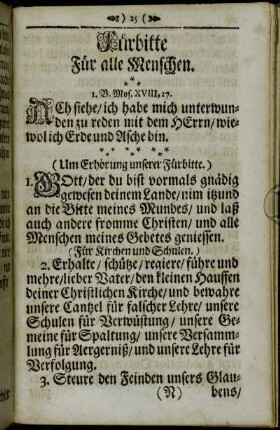 ) 25 (
Fürbitte
Für alle Menschen.
1. B. Mos. XVIII, 27.
ACh siehe/ ich habe mich unterwun-
den zu reden mit dem HErrn/ wie-
wol ich Erde und Asche bin.
(Um Erhörung unserer Fürbitte.)
1. GOtt/ der du bist vormals gnädig
gewesen deinem Lande/ nim itzund
an die Bitte meines Mundes/ und laß
auch andere fromme Christen/ und alle
Menschen meines Gebetes geniessen.
(Für Kirchen und Schulen.)
2. Erhalte/ schütze/ regiere/ führe und
mehre/ lieber Vater/ den kleinen Hauffen
deiner Christlichen Kirche/ und bewahre
unsere Cantzel für falscher Lehre/ unsere
Schulen für Verwüstung/ unsere Ge-
meine für Spaltung/ unsere Versamm-
lung für Aergerniß/ und unsere Lehre für
Verfolgung.
3. Steure den Feinden unsers Glau-
(N) bens/